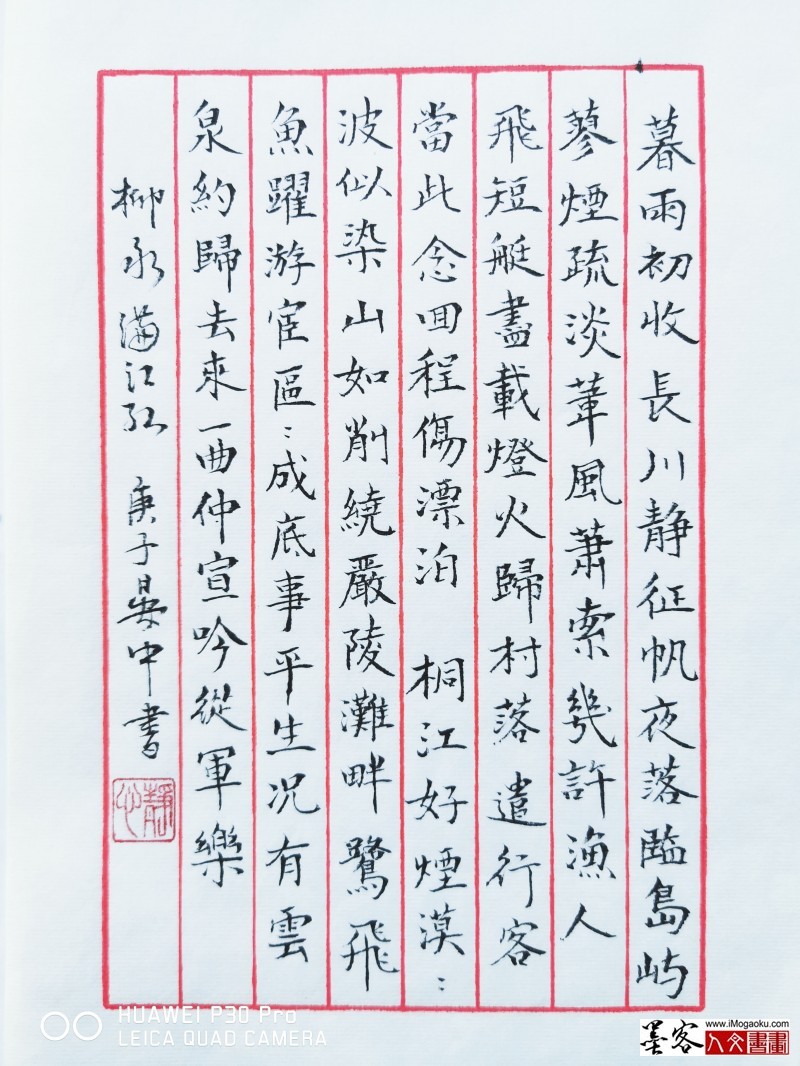 暮雨初收長川静征帆夜落臨島屿
蓼煙疏淡葦風蕭索幾許漁人
飛短艇盡載燈火歸村落遣行客
當此念回程傷漂泊 桐江好煙漠：
波似染山如削繞嚴陵灘畔鷺飛
魚躍游宦區：成底事平生况有雲
泉約歸去來一曲仲宣吟從軍樂
柳永滿江红 庚子晏中書
靜心
HUAWEI P30 Pro
LEICA QUAD CAMERA
www.iMogaoku.com
墨客人文書畫